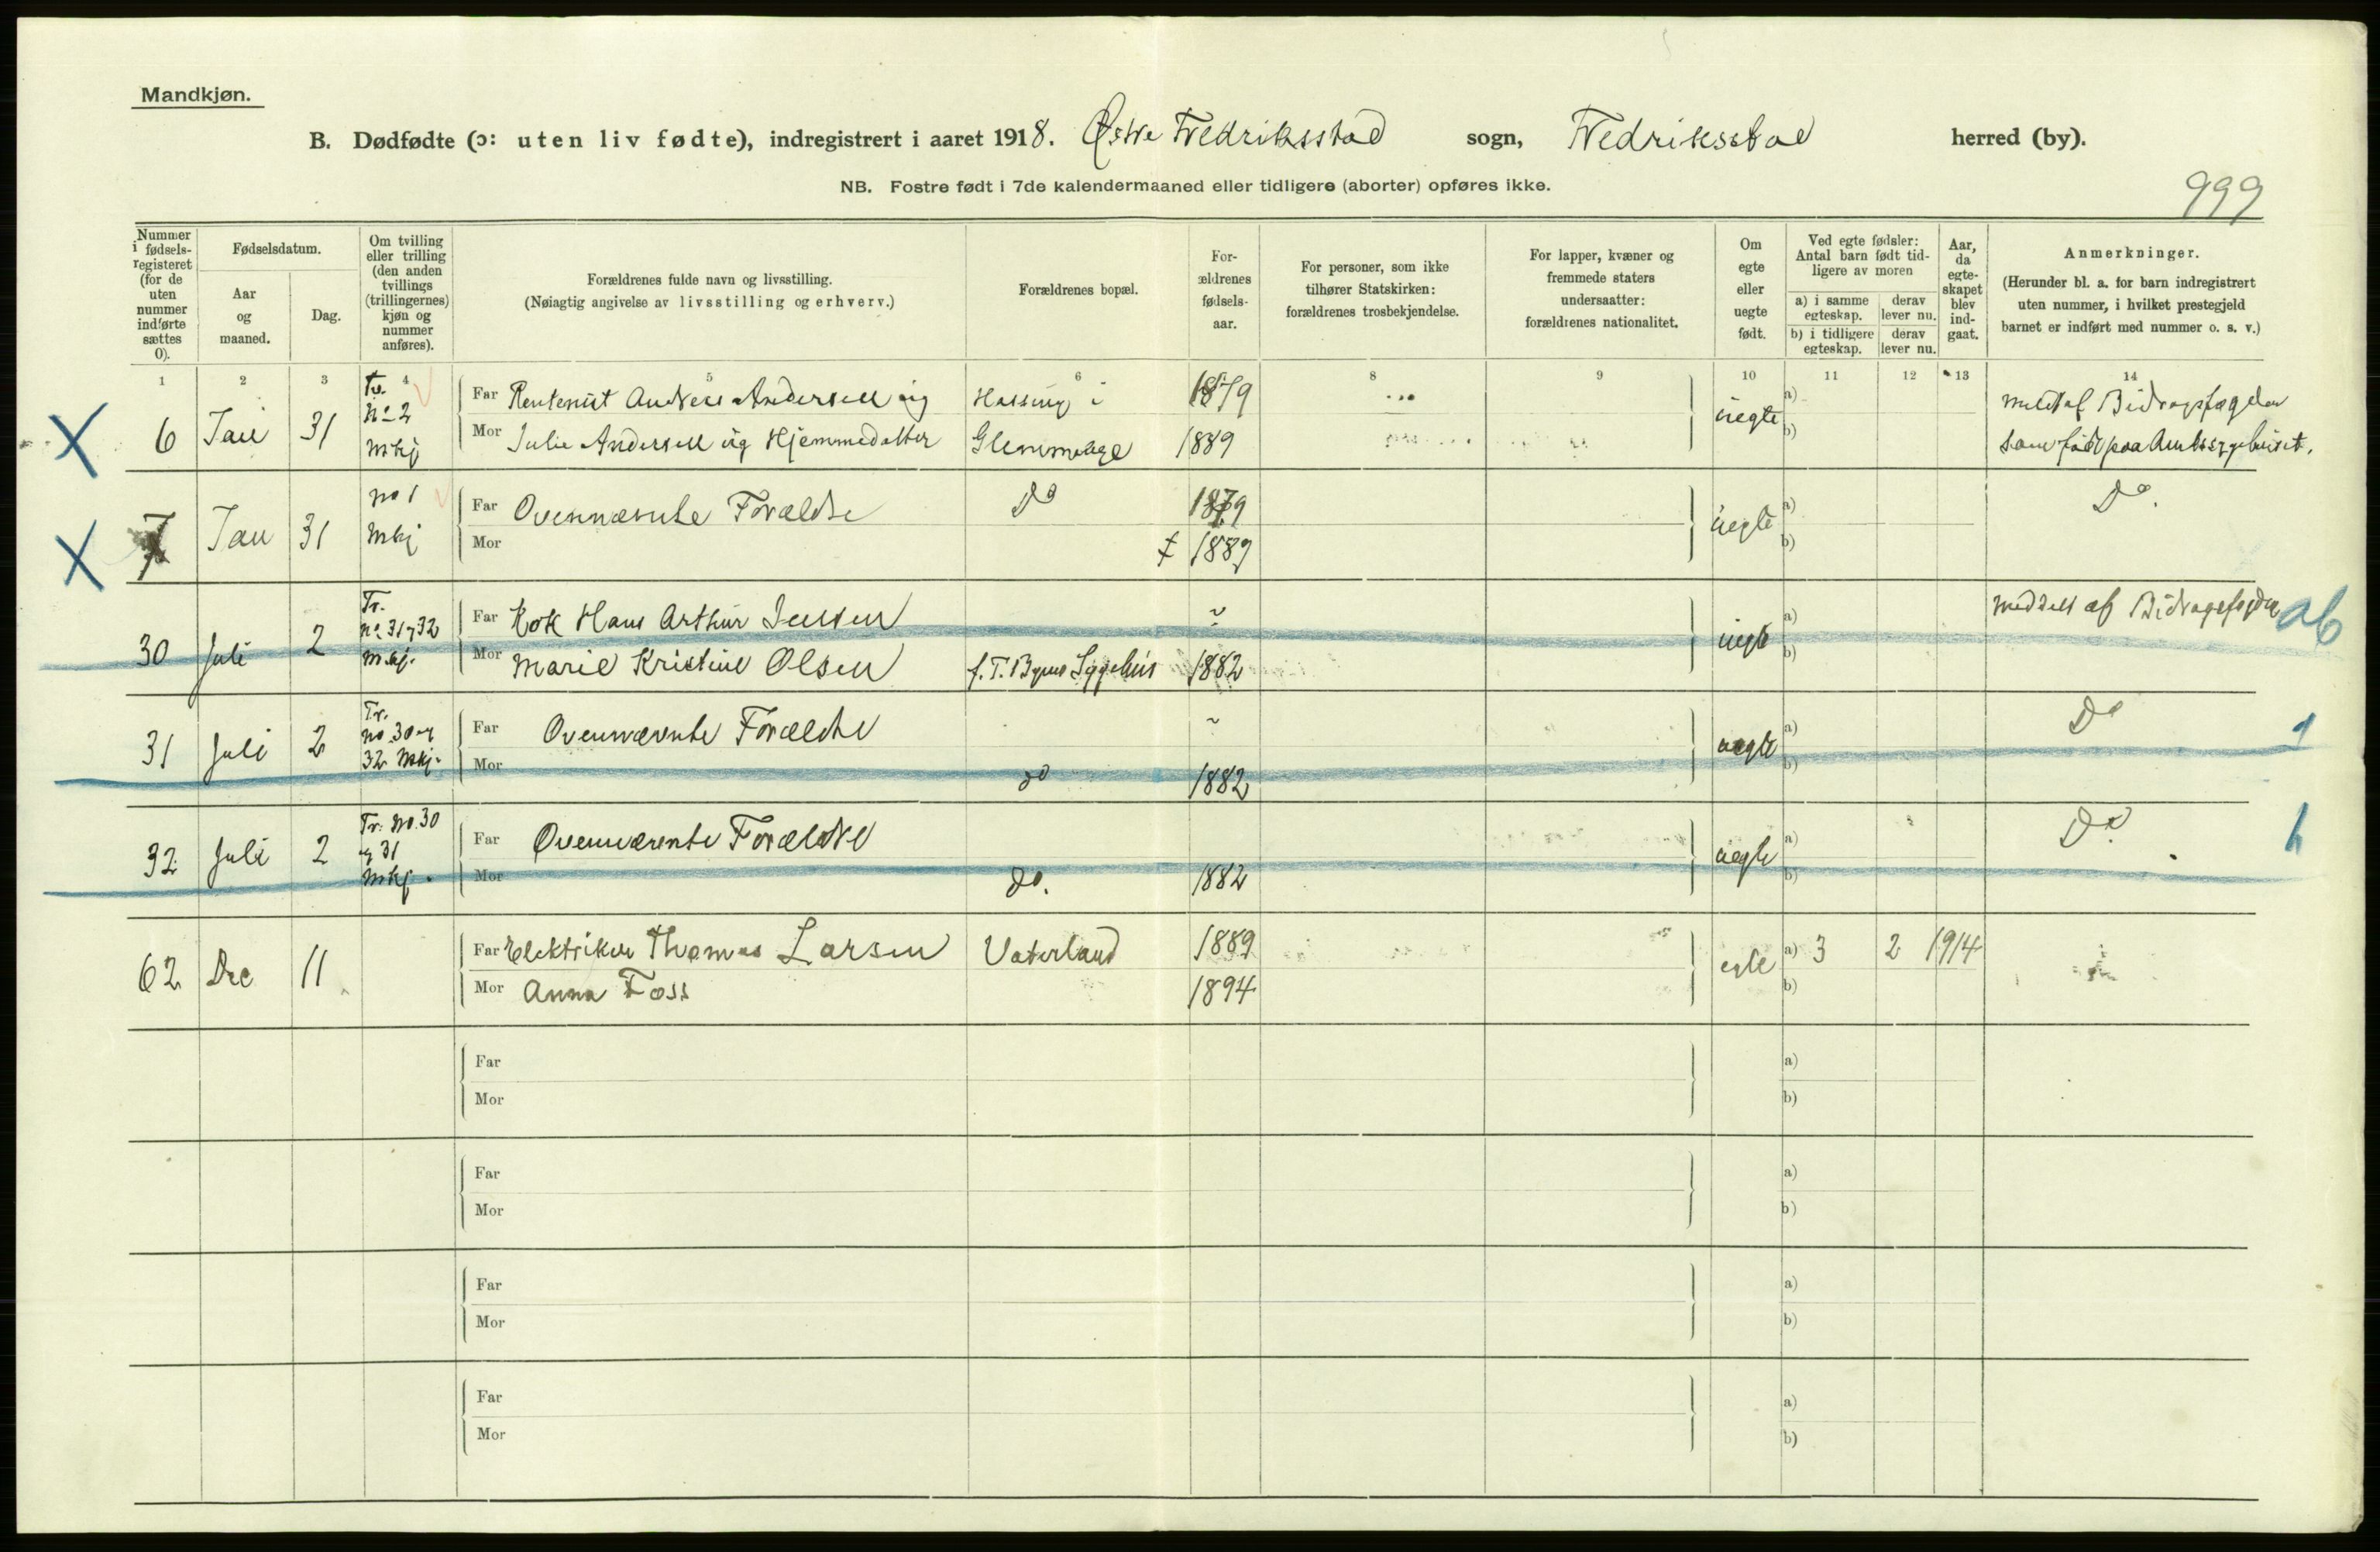 Mandkjøn.
B. Dødfødte (ɔ: uten liv fødte), indregistrert i aaret 1918. Østre Fredriksstad sogn, Fredriksstad herred (by).
NB. Fostre født i 7de kalendermaaned eller tidligere (aborter) opføres ikke.
999
Nummer i fødsels-registeret (for de uten nummer indførte sættes 0).
Fødselsdatum.
Aar og maaned.
Dag.
Om tvilling eller trilling (den anden tvillings (trillingernes) kjøn og nummer anføres).
Forældrenes fulde navn og livsstilling.
(Nøiagtig angivelse av livsstilling og erhverv.)
Forældrenes bopæl.
For-ældrenes fødsels-aar.
For personer, som ikke tilhører Statskirken: forældrenes trosbekjendelse.
For lapper, kvæner og fremmede staters undersaatter: forældrenes nationalitet.
Om egte eller uegte født.
Ved egte fødsler: Antal barn født tid-ligere av moren
a) i samme egteskap.
derav lever nu.
b) i tidligere egteskap.
derav lever nu.
Aar, da egte-skapet blev ind-gaat.
Anmerkninger.
(Herunder bl. a. for barn indregistrert uten nummer, i hvilket prestegjeld barnet er indført med nummer o. s. v.)
1 2 3 4 5 6 8 9 10 11 12 13 14
X 6 Jan 31 Tv. No 2 Mkj
Far Anders Andersen ug i 1879
Mor Julie Andersen ug Hjemmedatter Glemminge 1889
uegte a) b)
af Bidragsfogden
som født paa Amtssygehuset.
X 7 Jan 31 no 1 Mkj
Far Ovennævnte Forældre Do 1879
Mor 1889
uegte a) b) Do.
30 Juli 2 Tr. no 31 og 32 Mkj.
Far Kok Hans Arthur Jensen
Mor Marie Kristine Olsen f. T. Byens Sygehus 1882
uegte a) b) Meddelt af Bidragsfogden ab
31 Juli 2 Tr. no 30 og 32 Mkj.
Far Ovennævnte Forældre
Mor do 1882
uegte a) b) Do
32 Juli 2 Tr. No. 30 og 31 Mkj.
Far Ovennævnte Forældre
Mor do. 1882
uegte a) b) Do.
62 Dec 11
Far Elektriker Thomas Larsen Vaterland 1889
Mor Anna Foss 1894
egte a) 3 2 1914
b)
Far a)
Mor b)
Far a)
Mor b)
Far a)
Mor b)
Far a)
Mor b)